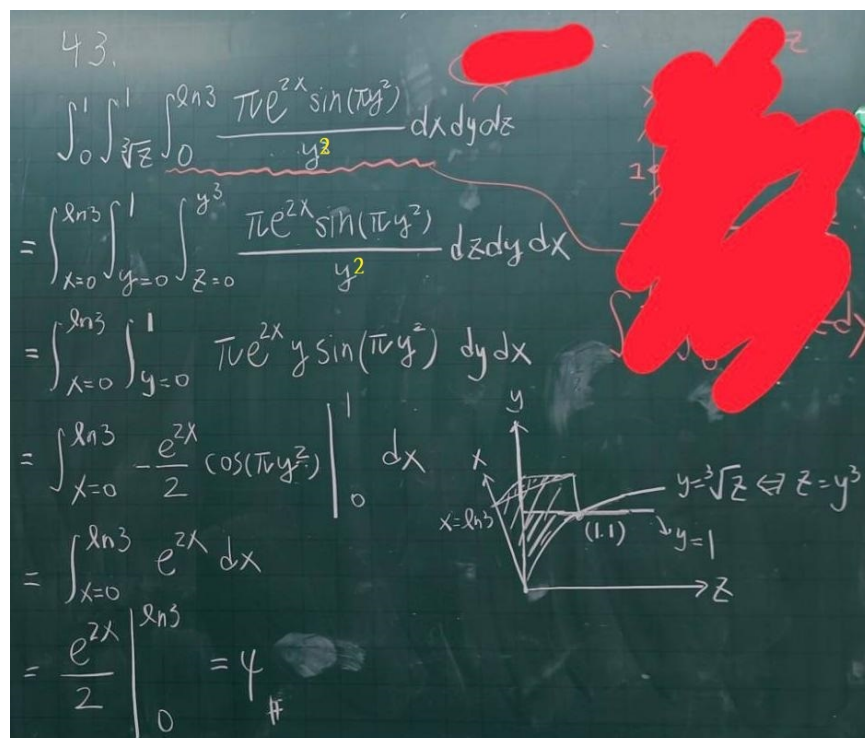 43.
∫₀¹ ∫_{∛z}^{1} ∫₀^{ln3} πe^{2x} sin(πy²) / y² dx dy dz
= ∫_{x=0}^{ln3} ∫_{y=0}^{1} ∫_{z=0}^{y³} πe^{2x} sin(πy²) / y² dz dy dx
= ∫_{x=0}^{ln3} ∫_{y=0}^{1} πe^{2x} y sin(πy²) dy dx
= ∫_{x=0}^{ln3} -e^{2x}/2 cos(πy²) |₀¹ dx
= ∫_{x=0}^{ln3} e^{2x} dx
= e^{2x}/2 |₀^{ln3} = 4 #
z
1
∫ 0 dy
y
x
x=ln3
y=∛z ⇔ z=y³
(1.1)
y=1
z